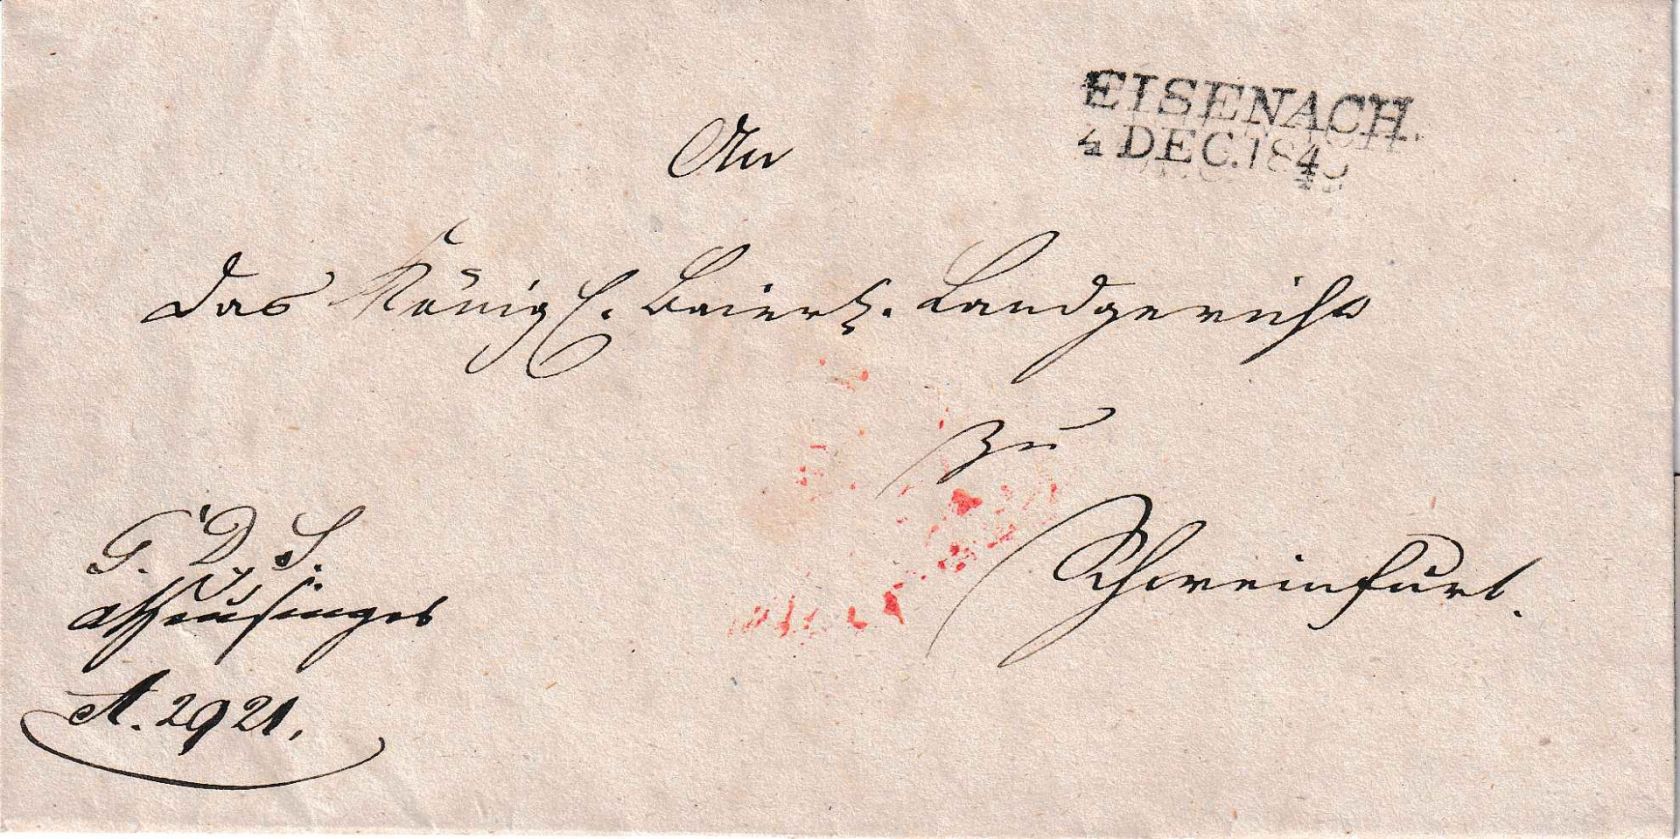 EISENACH.
4 DEC. 184
An
das Königl. Baiersch. Landgericht
zu
Schweinfurt.
G. D. S.
Heusinger
A. 2921.